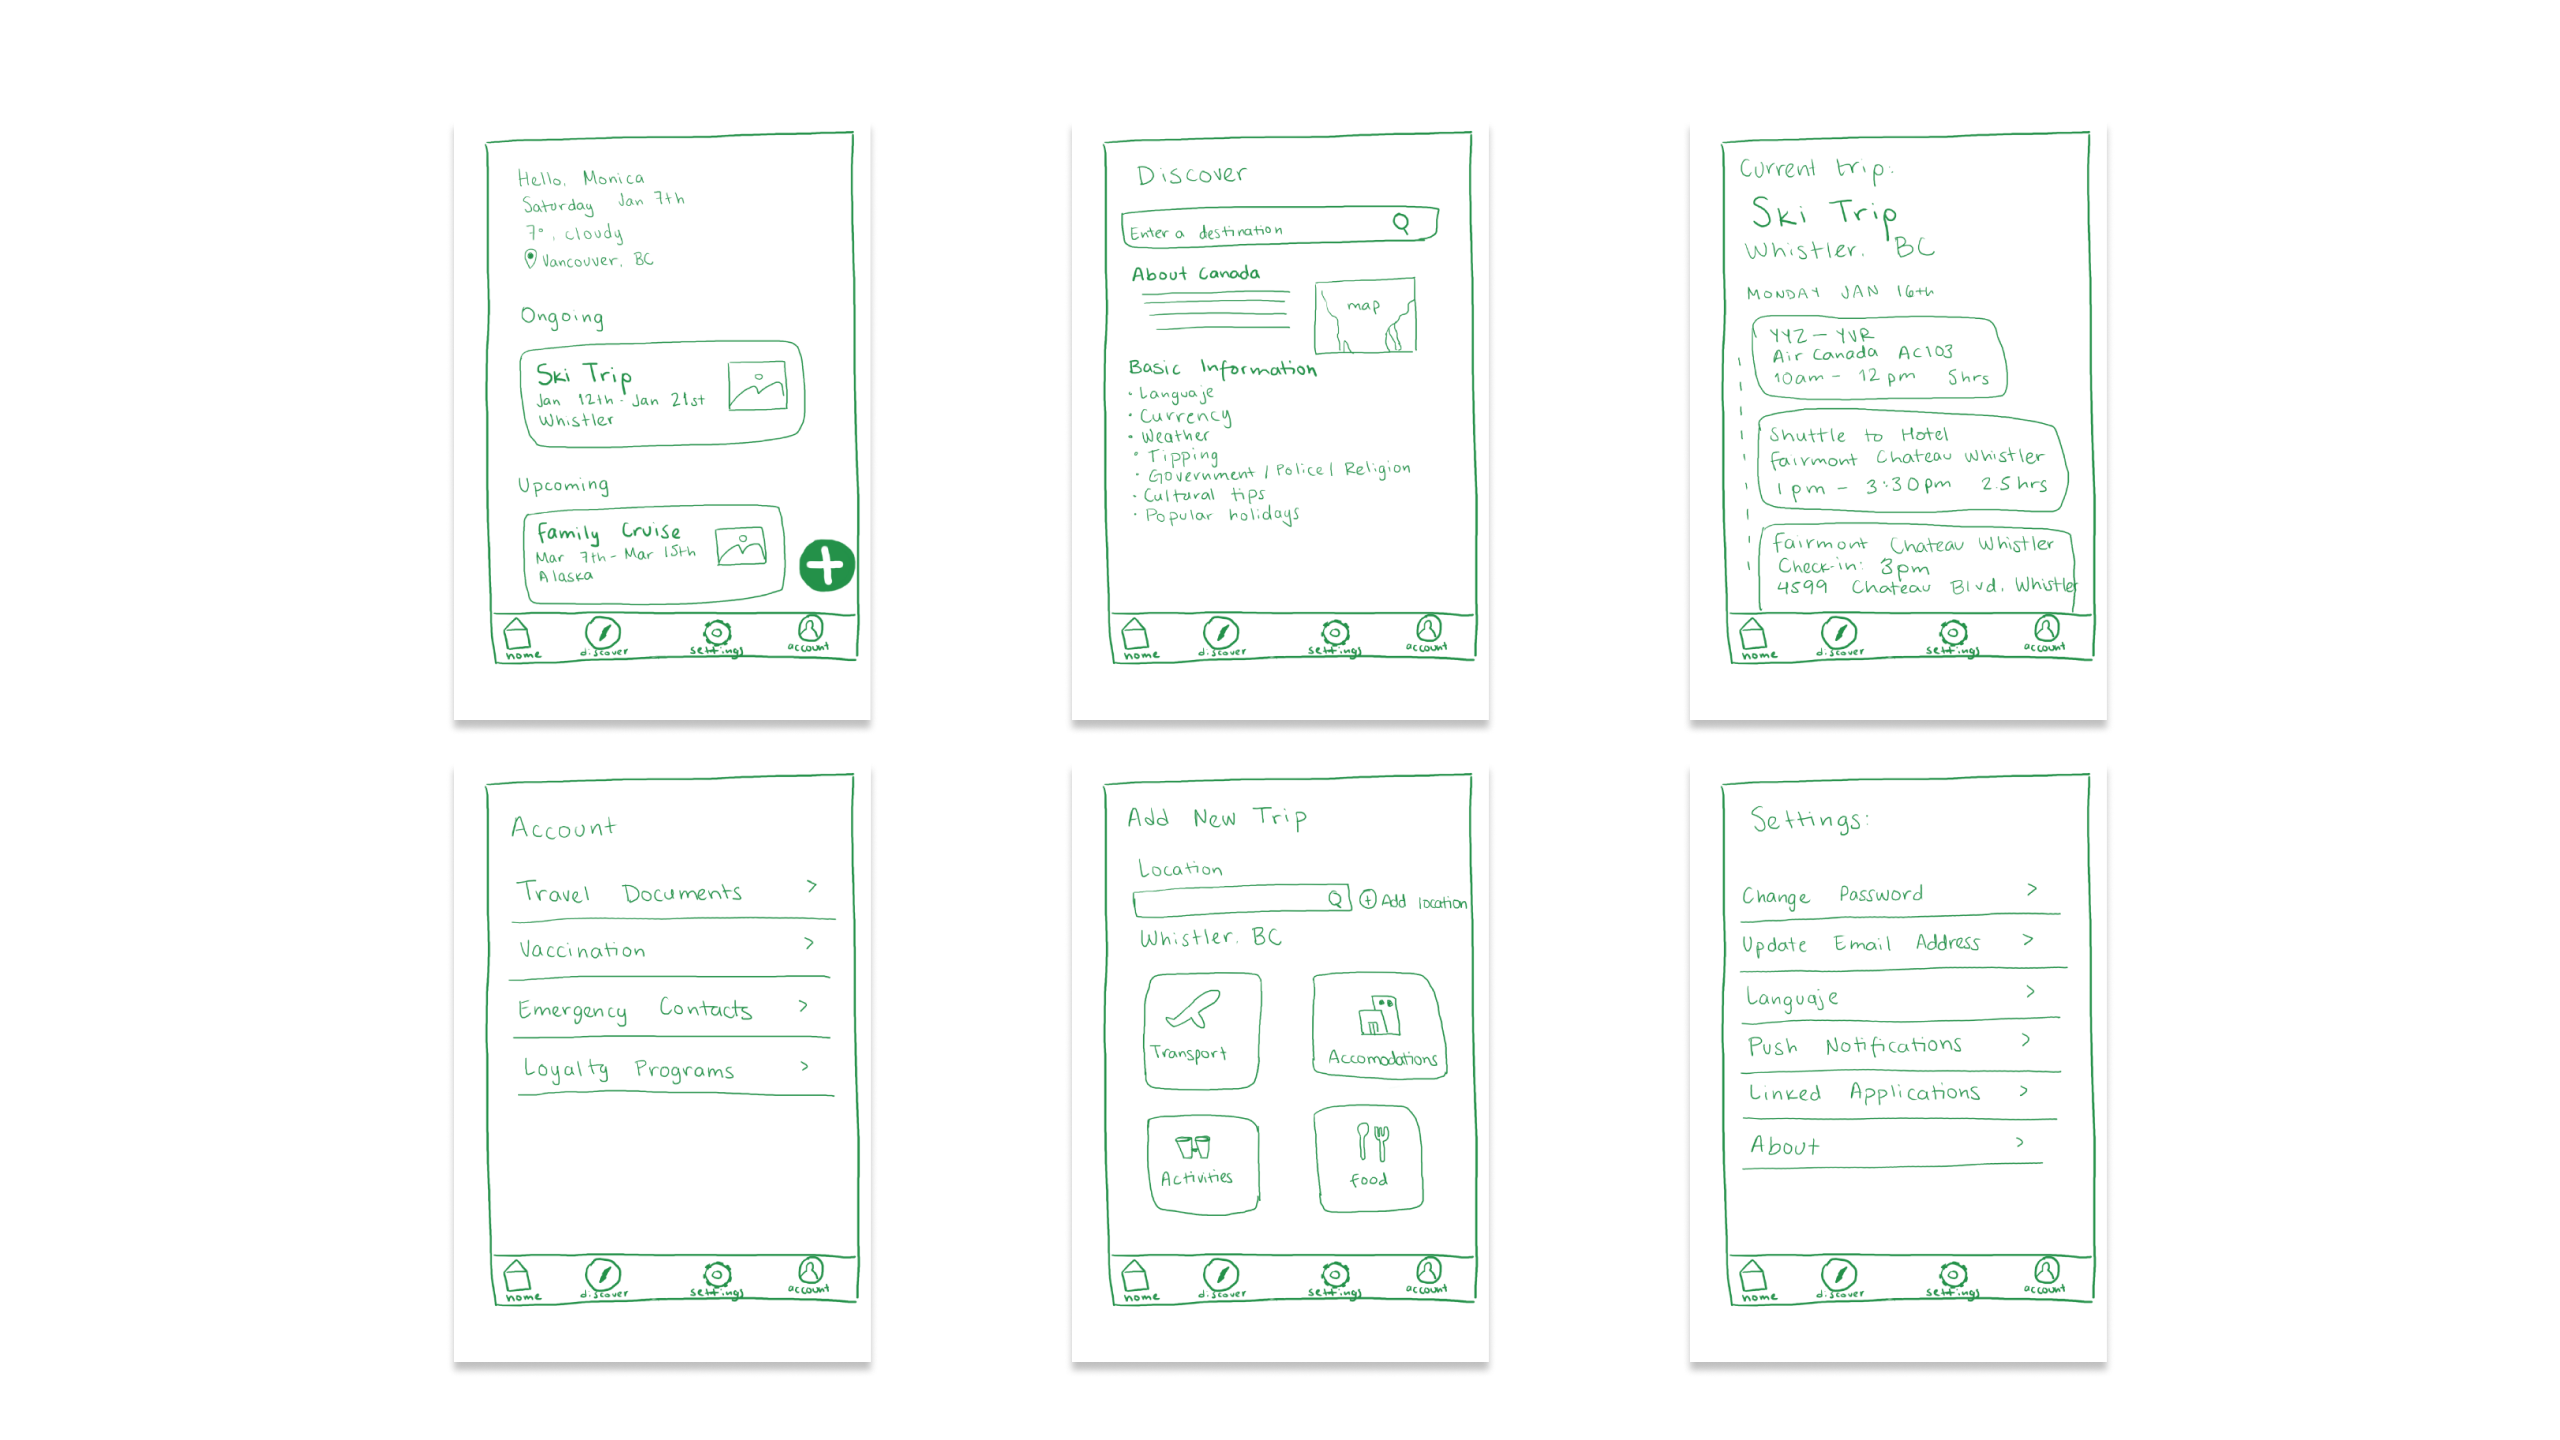 Hello, Monica
Saturday Jan 7th
7°, cloudy
Vancouver, BC
Ongoing
Ski Trip
Jan 12th - Jan 21st
Whistler
Upcoming
Family Cruise
Mar 7th - Mar 15th
Alaska
home discover settings account
Discover
Enter a destination
About Canada
map
Basic Information
• Languaje
• Currency
• Weather
• Tipping
• Government / Police / Religion
• Cultural tips
• Popular holidays
home discover settings account
Current trip:
Ski Trip
Whistler, BC
MONDAY JAN 16th
YYZ - YVR
Air Canada AC103
10am - 12 pm 5hrs
Shuttle to Hotel
Fairmont Chateau Whistler
1pm - 3:30pm 2.5hrs
Fairmont Chateau Whistler
Check-in: 3pm
4599 Chateau Blvd, Whistler
home discover settings account
Account
Travel Documents >
Vaccination >
Emergency Contacts >
Loyalty Programs >
home discover settings account
Add New Trip
Location
Add location
Whistler, BC
Transport Accomodations
Activities Food
home discover settings account
Settings:
Change Password >
Update Email Address >
Languaje >
Push Notifications >
Linked Applications >
About >
home discover settings account